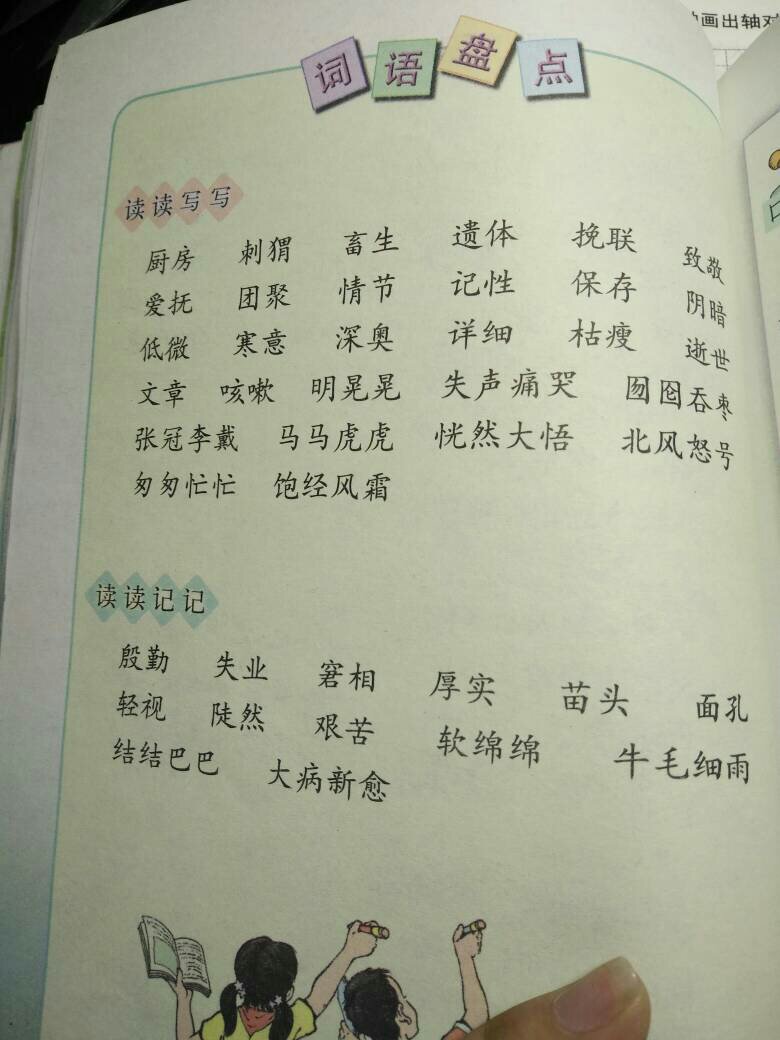 画出轴对
词语盘点
读读写写
厨房 刺猬 畜生 遗体 挽联 致敬
爱抚 团聚 情节 记性 保存 阴暗
低微 寒意 深奥 详细 枯瘦 逝世
文章 咳嗽 明晃晃 失声痛哭 囫囵吞枣
张冠李戴 马马虎虎 恍然大悟 北风怒号
匆匆忙忙 饱经风霜
读读记记
殷勤 失业 窘相 厚实 苗头 面孔
轻视 陡然 艰苦 软绵绵 牛毛细雨
结结巴巴 大病新愈